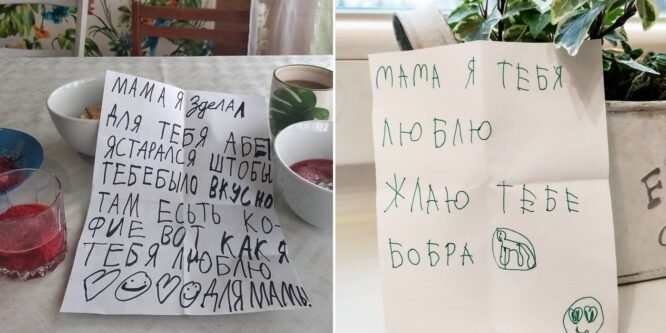 МАМА Я ЗДЕЛАЛ
ДЛЯ ТЕБЯ АБЕТ
ЯСТАРАЛСЯ ШТОБЫ
ТЕБЕБЫЛО ВКУСНО
ТАМ ЕСЬТЬ КО-
ФИЕ ВОТ КАК Я
ТЕБЯ ЛЮБЛЮ
ДЛЯ МАМЫ!
МАМА Я ТЕБЯ
ЛЮБЛЮ
ЖЛАЮ ТЕБЕ
БОБРА